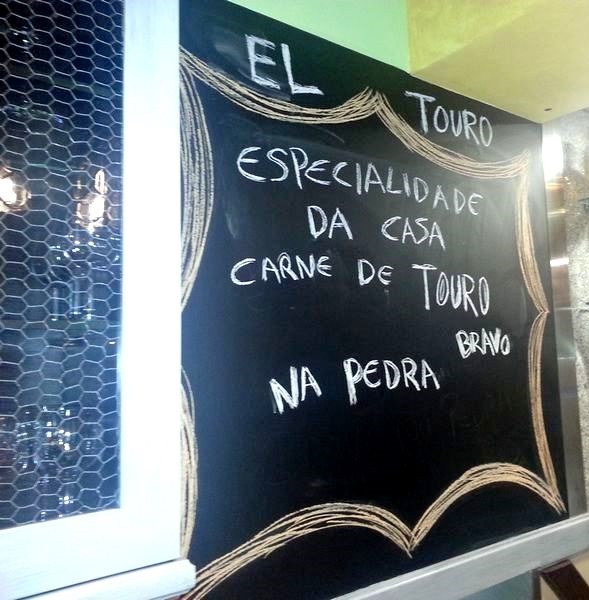 EL TOURO
ESPECIALIDADE
DA CASA
CARNE DE TOURO
BRAVO
NA PEDRA